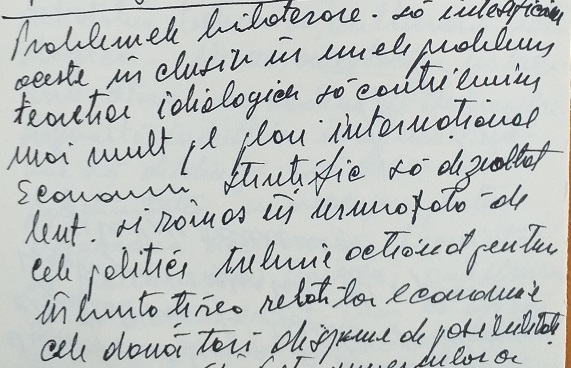 Problemele bilaterare. să intesificăm
aceste în clusiv în unele problem
teoretice idiologice să contribuim
mai mult pe plan internaționol
Economic științific să dezvoltat
lent. și rămas în urmo față de
cele politice trebuie acționat pentru
înbunătățirea relațiilor economice
cele două țări dispune de posibilități